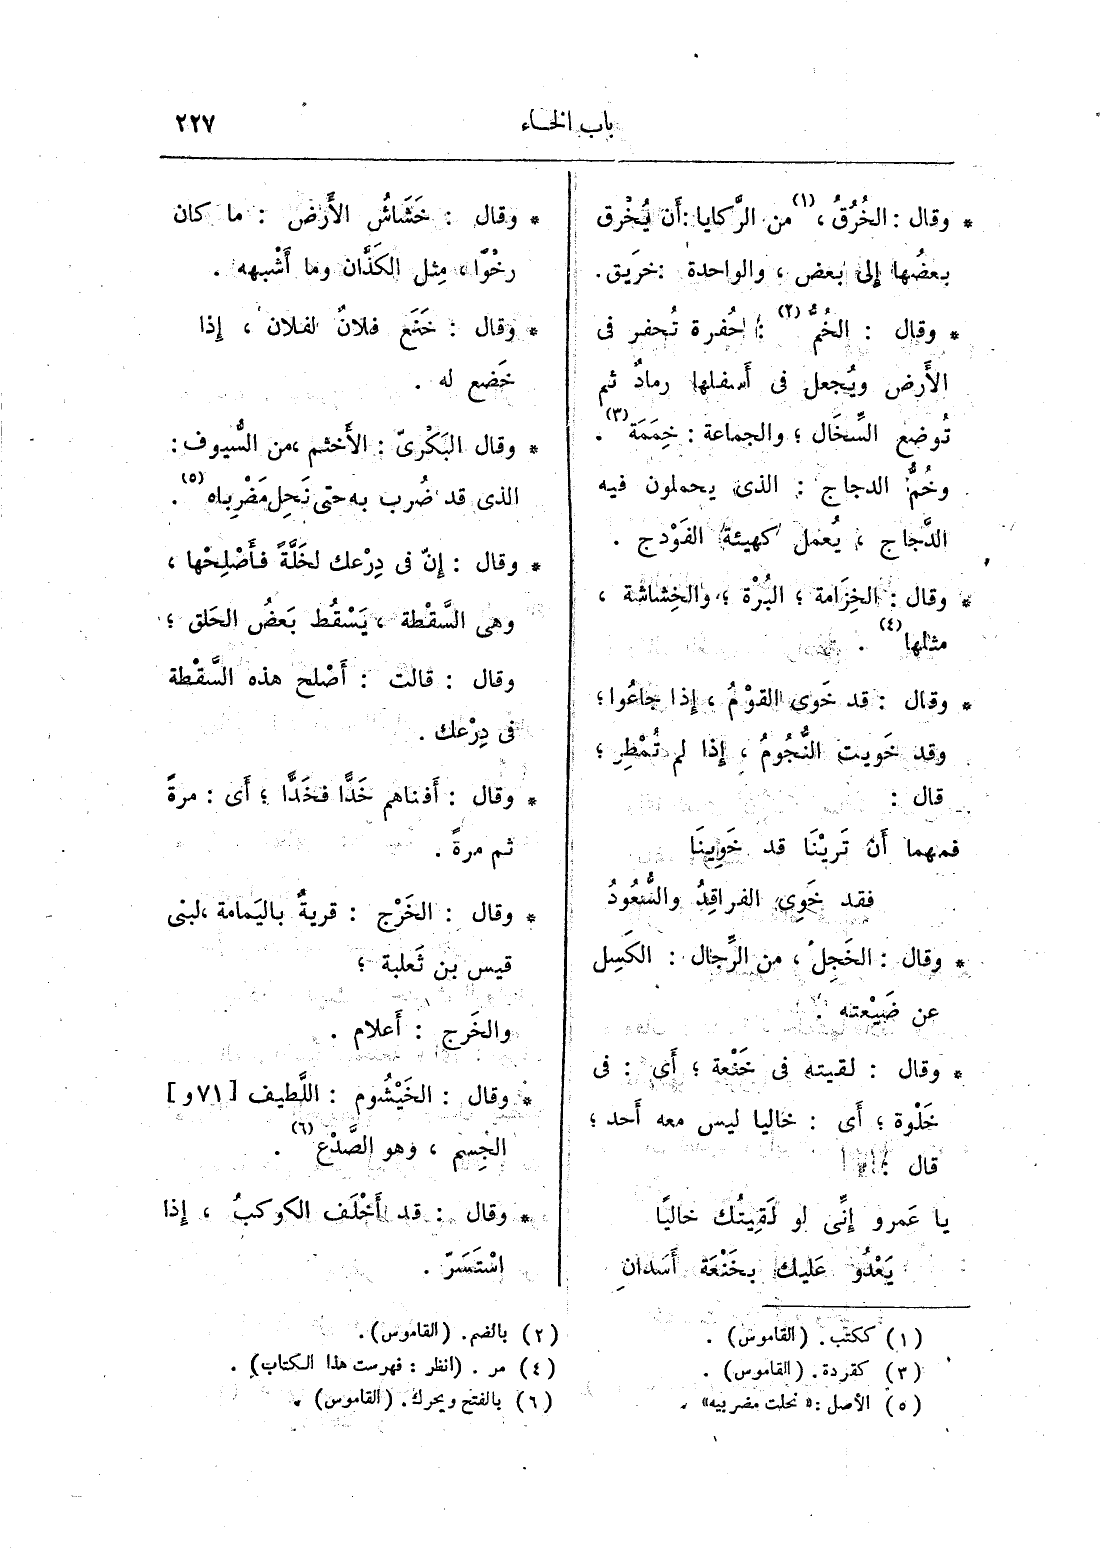 باب الخاء
٢٢٧
* وقال : الخُرُقُ ،(١) من الرَّكايا : أَن يُخْرق
بعضُها إِلى بعض ، والواحدة : خَرِيق .
* وقال : الخُمُّ (٢) : حُفرة تُحفر فى
الأَرض ويُجعل فى أَسفلها رمادٌ ثم
تُوضع السِّخَال ؛ والجماعة : خِمَمَة(٣) .
وخُمُّ الدجاج : الذى يحملون فيه
الدَّجاج ، يُعمل كهيئة الفَوْدج .
* وقال : الخِزَامة ؛ البُرْة ؛ والخِشاشة ،
مثلها(٤) .
* وقال : قد خَوى القوْمُ ، إِذا جاعُوا ؛
وقد خَويت النُّجُومُ ، إِذا لم تُمْطِر ؛
قال :
فمهما أَن تَريْنَا قد خَوِينَا
فقد خَوِى الفراقِدُ والسُّعُودُ
* وقال : الخَجِلُ ، من الرِّجال : الكَسِل
عن ضَيْعته .
* وقال : لقيته فى خَنْعة ؛ أَى : فى
خَلْوة ؛ أَى : خاليا ليس معه أَحد ؛
قال :
يا عَمرو إِنِّى لو لَقِيتُك خاليًا
يَغْدُو عَليك بخَنْعَة أَسَدانِ
* وقال : خَشَاشُ الأَرض : ما كان
رخْوًا ، مِثل الكَذَّان وما أَشْبهه .
* وقال : خَنَع فلانٌ لفلان ، إِذا
خَضع له .
* وقال البَكْرىّ : الأَخثم ، من السُّيوف :
الذى قد ضُرب به حتى نَحِل مَضْرِباه(٥) .
* وقال : إِنّ فى دِرْعك لخَلَّةً فأَصْلِحْها ،
وهى السَّقْطة ، يَسْقُط بَعضُ الحَلق ؛
وقال : قالت : أَصْلح هذه السَّقْطة
فى دِرْعك .
* وقال : أَفناهم خَدًّا فخَدًّا ؛ أَى : مرةً
ثم مرةً .
* وقال : الخَرْج : قريةٌ باليَمامة ، لبنى
قيس بن ثَعلبة ؛
والخَرج : أَعلام .
* وقال : الخَيْشُوم : اللَّطيف [٧١و]
الجِسم ، وهو الصَّدْع(٦) .
* وقال : قد أَخْلَف الكوكبُ ، إِذا
اسْتَسَرّ .
(١) ككتب . (القاموس) .
(٢) بالضم . (القاموس) .
(٣) كقردة . (القاموس) .
(٤) مر . (انظر : فهرست هذا الكتاب) .
(٥) الأصل : « نحلت مضربيه» .
(٦) بالفتح ويحرك . (القاموس) .